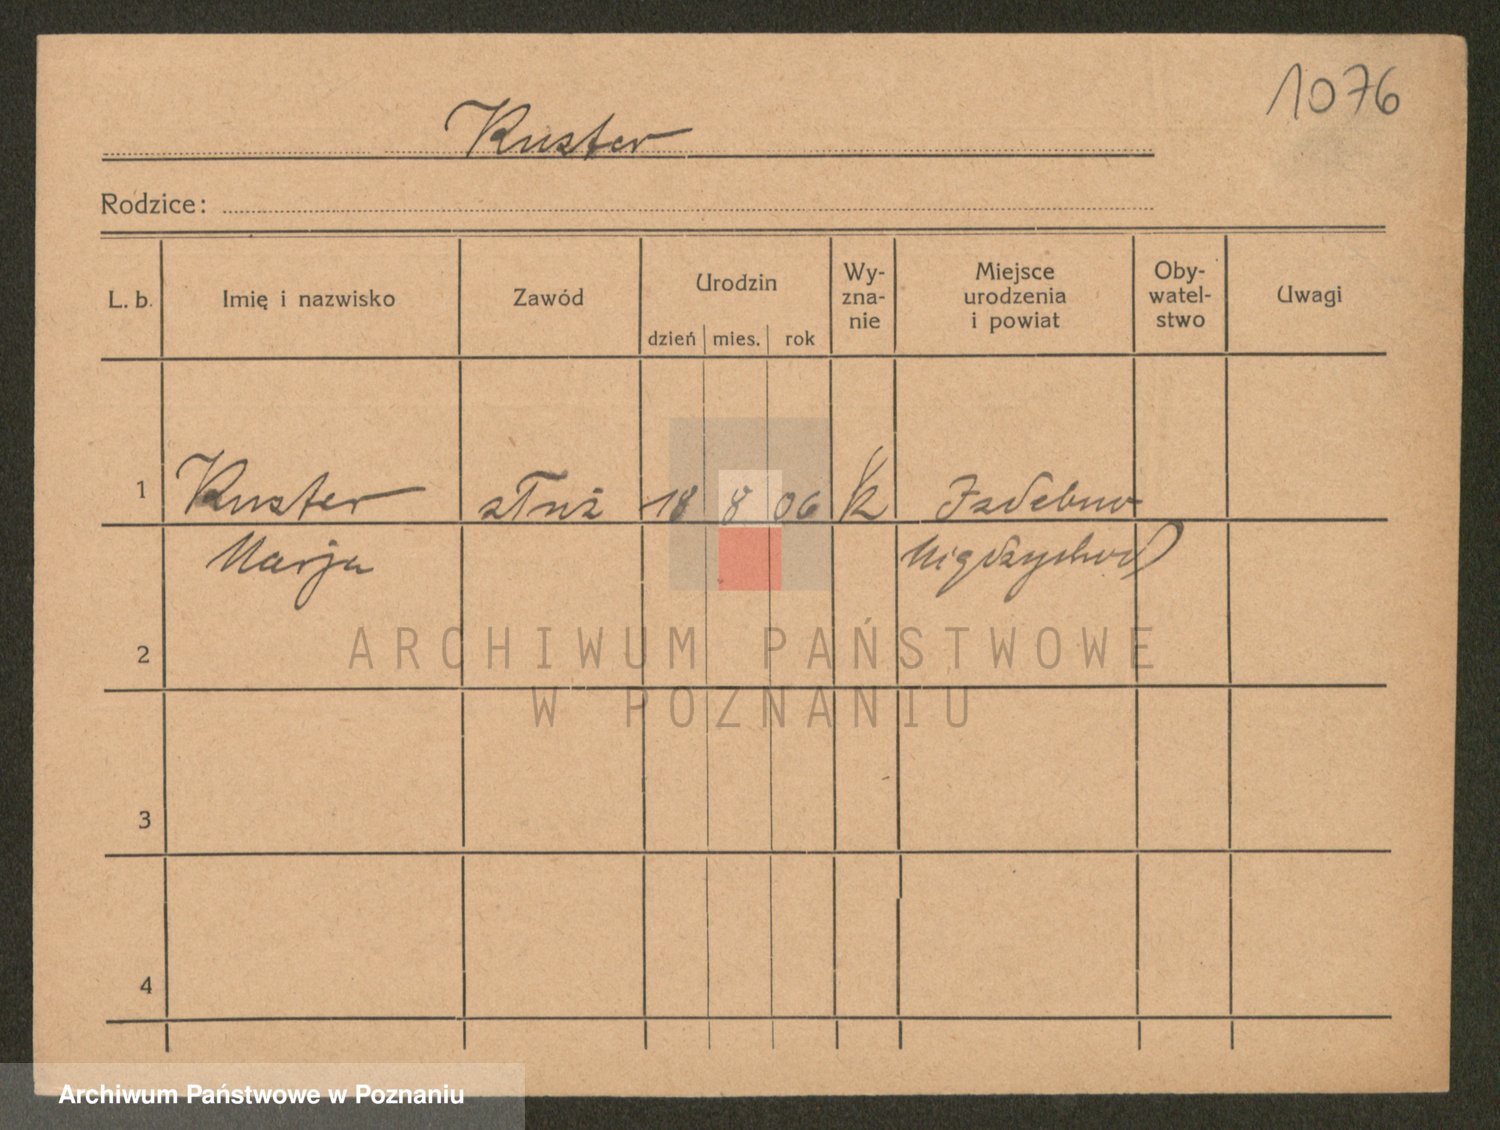 1076
Kuster
Rodzice:
L. b.
Imię i nazwisko
Zawód
Urodzin
dzień mies. rok
Wy-
zna-
nie
Miejsce
urodzenia
i powiat
Oby-
watel-
stwo
Uwagi
1 Kuster służ 18 8 06 k Izdebno
Marja Międzychod
2
3
4
ARCHIWUM PAŃSTWOWE
W POZNANIU
Archiwum Państwowe w Poznaniu